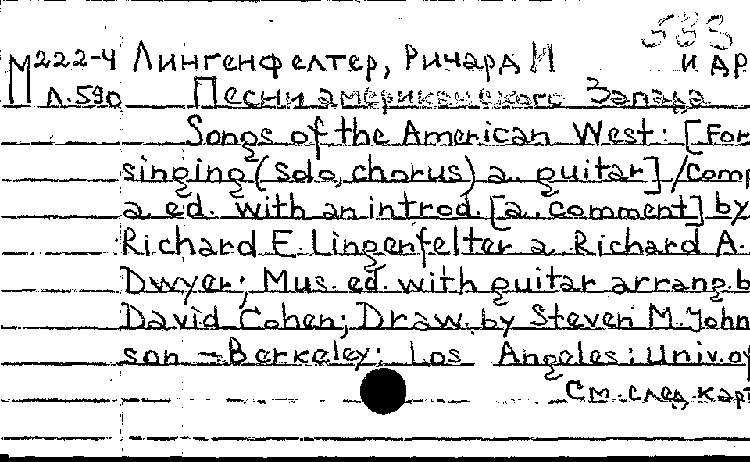 М222-4 Лингенфелтер, Ричард И и др
Л.590 Песни американского Запада
Songs of the American West: [For
singing (solo, chorus) a. guitar] / Comp
a. ed. with an introd. [a. comment] by
Richard E. Lingenfelter a. Richard A.
Dwyer; Mus. ed. with guitar arrang. b
David Cohen; Draw. by Steven M. John
son – Berkeley; Los Angeles: Univ. of
См. след карт